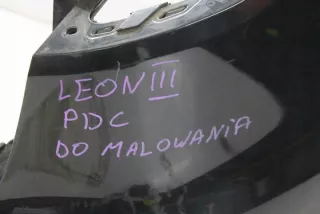 LEON III
PDC
DO MALOWANIA